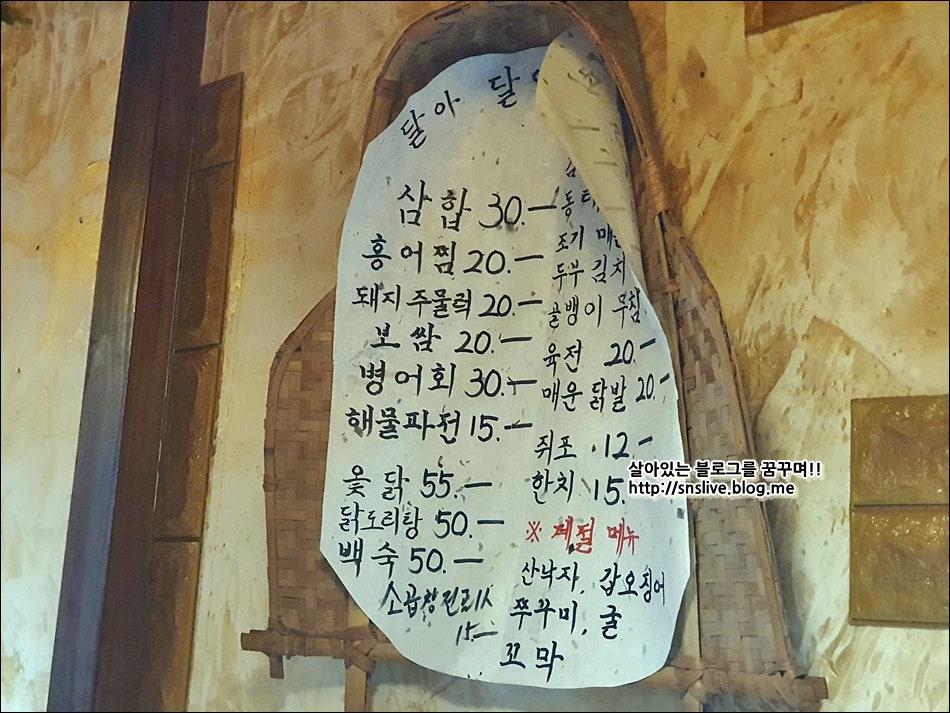 달아 달
삼합 30.-
홍어찜 20.-
돼지주물럭 20.-
보쌈 20.-
병어회 30.-
해물파전 15.-
옻닭 55.-
닭도리탕 50.-
백숙 50.-
소곱창전골1人
15.-
동태
조기 매운
두부 김치
골뱅이 무침
육전 20.-
매운 닭발 20.-
쥐포 12-
한치 15.
※ 제철 메뉴
산낙자, 갑오징어
쭈꾸미, 굴
꼬막
살아있는 블로그를 꿈꾸며!!
http://snslive.blog.me